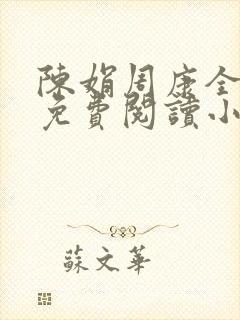 陳娟周康全
免費閱讀小
蘇文華